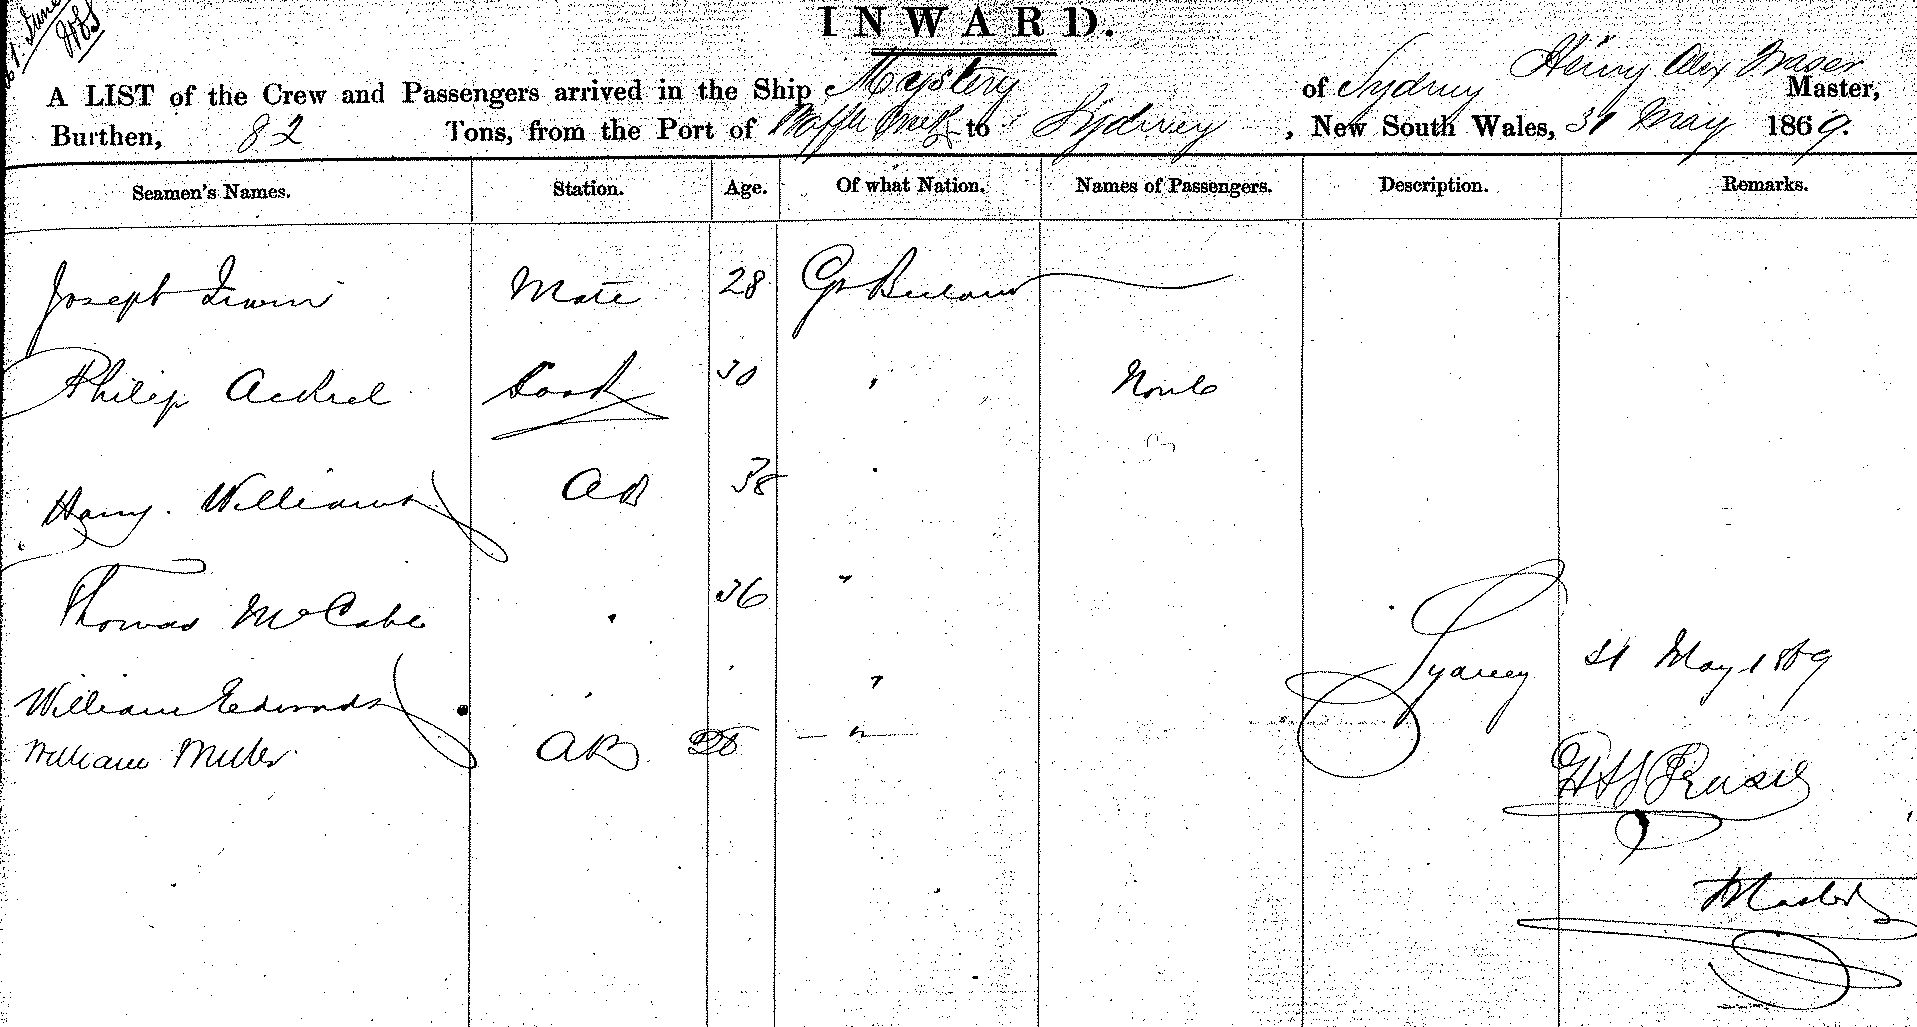 1. June
INWARD.
Henry Alex Fraser
A LIST of the Crew and Passengers arrived in the Ship Mystery of Sydney Master,
Burthen, 82 Tons, from the Port of to Sydney, New South Wales, 31 May 1869.
Seamen's Names. Station. Age. Of what Nation. Names of Passengers. Description. Remarks.
Joseph Irwin Mate 28 Gt
Philip Cook 30 " None
Harry. Williams AB 38 "
Thomas McCabe " 36 "
William Edwards " " "
William Miller AB 28 "
Sydney 31 May 1869
Fraser
Master